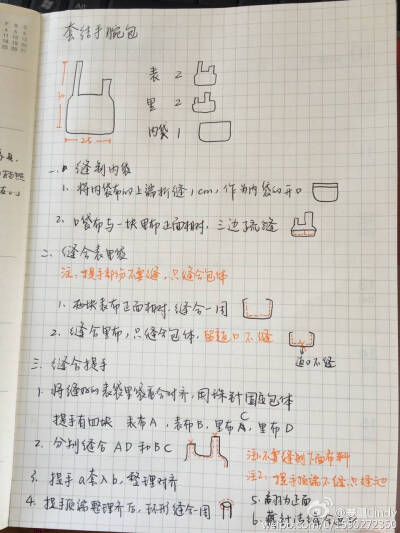 套结手腕包
表 2
里 2
内袋 1
30
25
一、缝制内袋
1. 将内袋布的上端折缝1cm,作为内袋的开口
2. 口袋布与一块里布正面相对,三边疏缝
二、缝合表里袋
注:提手部分不要缝,只缝合包体
1. 两块表布正面相对,缝合一周
2. 缝合里布,只缝合包体,留返口不缝
返口不缝
三、缝合提手
1. 将缝好的表袋里袋套合对齐,用珠针固定包体
提手有四块 表布A,表布B,里布C,里布D
2. 分别缝合 AD和BC
注:不要缝制下面布料
3. 提手a套入b,整理对齐
注2:提手顶端不缝只缝边
4. 提手顶端整理齐后,环形缝合一周
5. 翻为正面
6. 藏针法缝合返口
weibo.com/u/1550272350